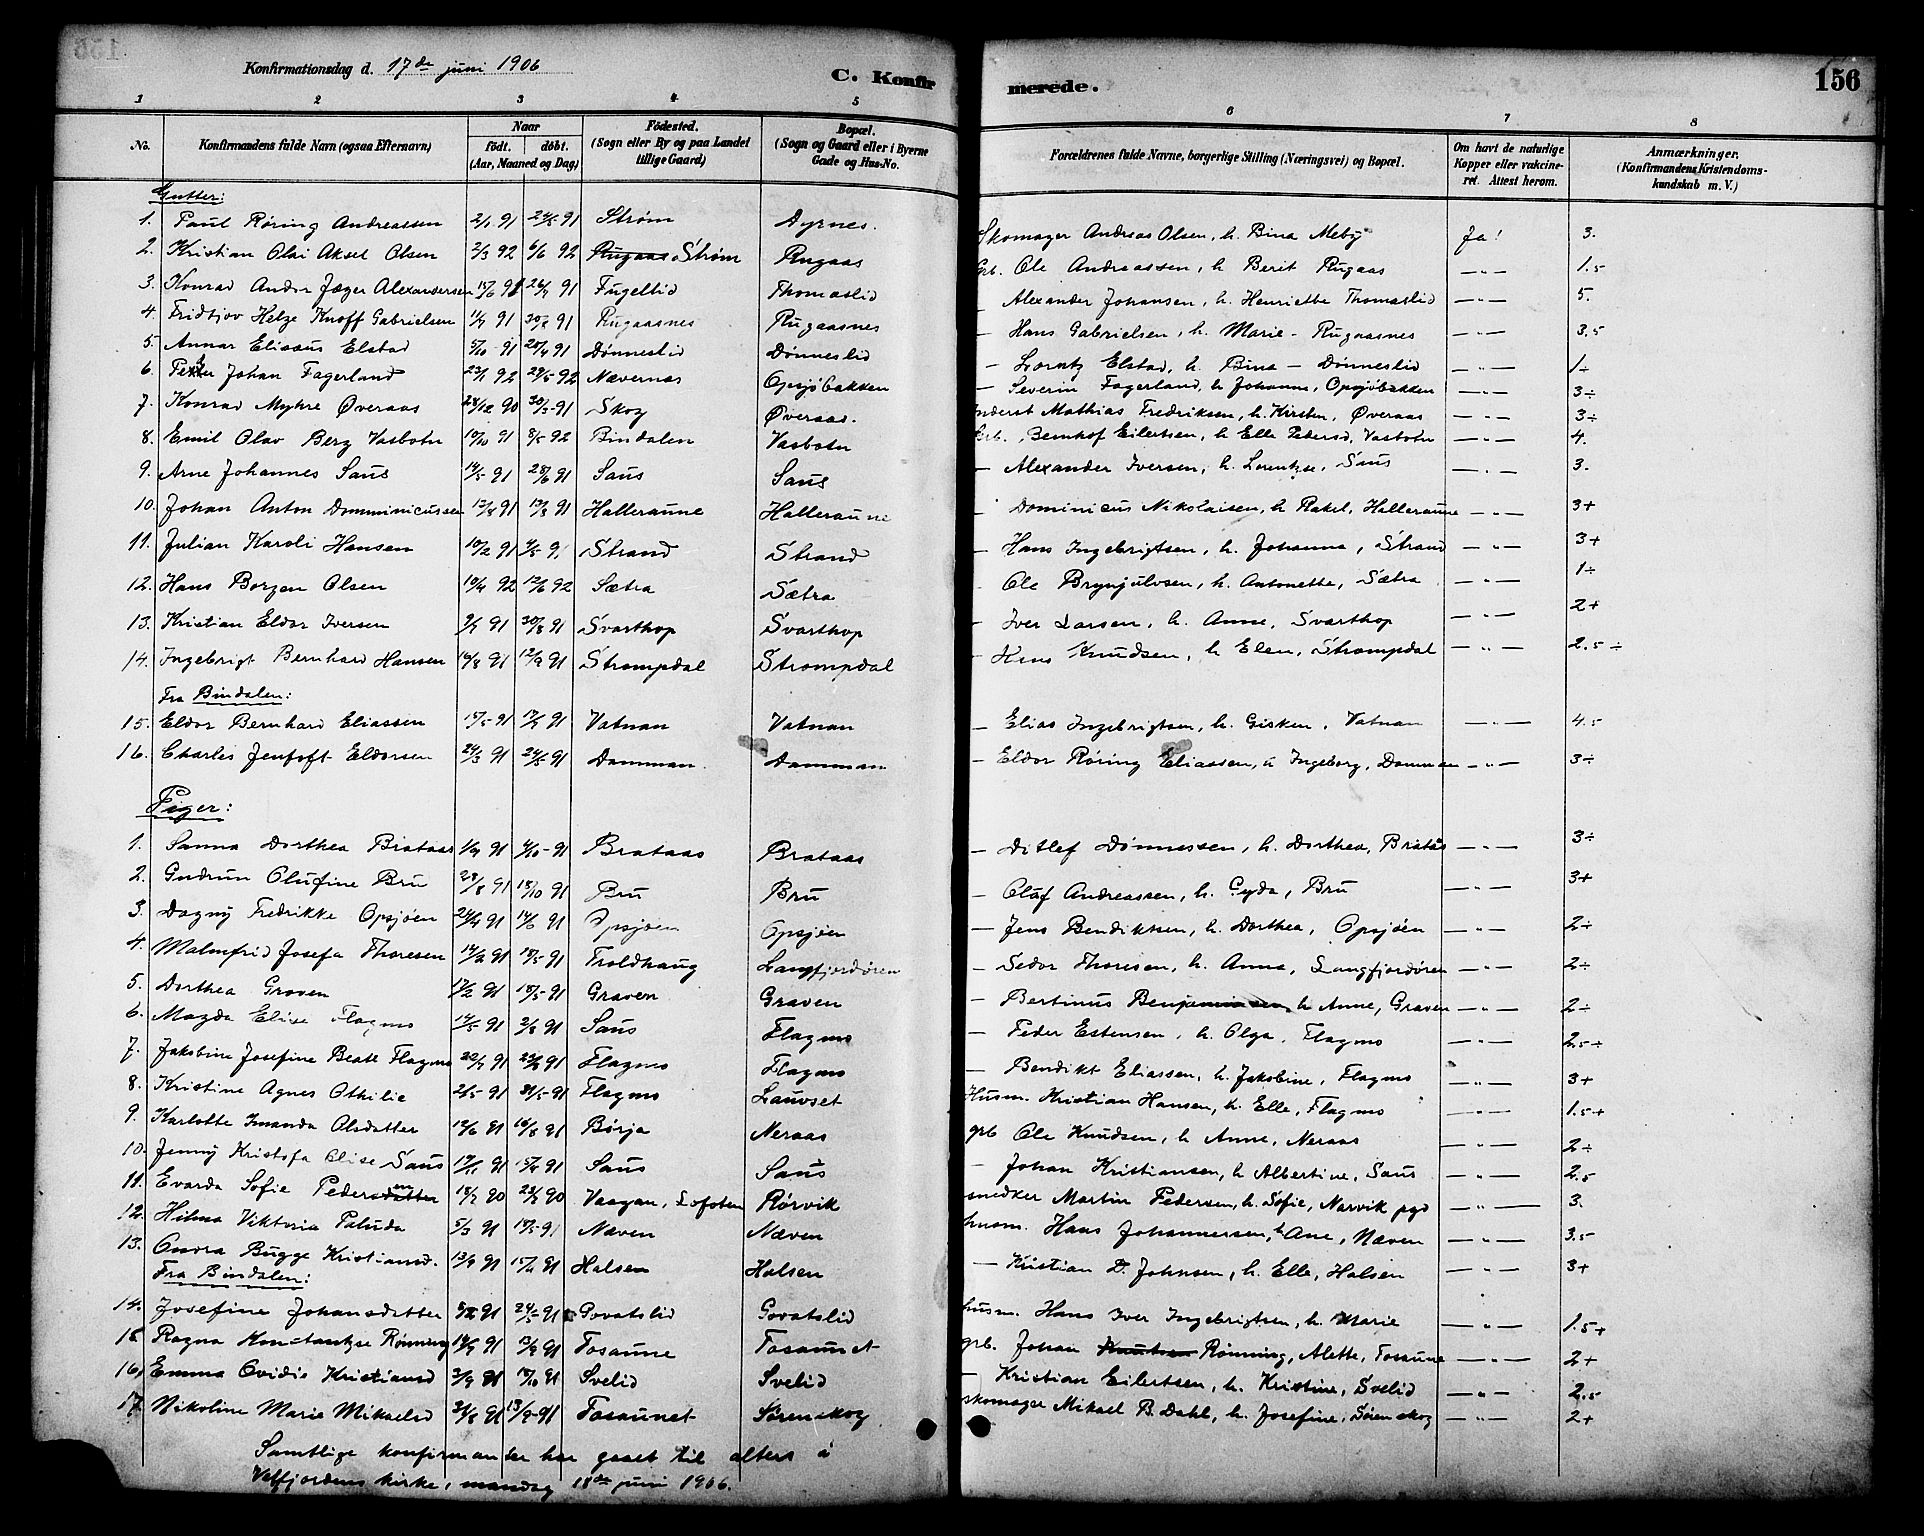 Konfirmationsdag d. 17de juni 1906
C. Konfirmerede.
156
1 2 3 4 5 6 7 8
No. Konfirmandens fulde Navn (ogsaa Efternavn) Naar født. døbt. (Aar, Maaned og Dag) Fødested. (Sogn eller By og paa Landet tillige Gaard) Bopæl. (Sogn og Gaard eller i Byerne Gade og Hus-No. Forældrenes fulde Navne, borgerlige Stilling (Næringsvei) og Bopæl. Om havt de naturlige Kopper eller vakcineret. Attest herom. Anmærkninger. (Konfirmandens Kristendomskundskab m. V.)
Gutter:
1. Paul Røring Andreassen 2/1 91 24/5 91 Strøm Dyrnes. Skomager Andreas Olsen, h. Bina Meby Ja! 3.
2. Kristian Olai Aksel Olsen 2/3 92 6/6 92 Rugaas Strøm Rugaas Grb. Ole Andreassen, h Berit Rugaas —"— 1.5
3. Konrad Andor Jæger Alexandersen 15/6 91 26/7 91 Fugellid Thomaslid — Alexander Johansen, h. Henriette Thomaslid —"— 5.
4. Fridtjov Helge Knoff Gabrielsen 91 91 Rugaasnes Rugaasnes — Hans Gabrielsen, h. Marie - Rugaasnes —"— 3.5
5. Annar Eliseus Elstad 5/10 91 91 Dønneslid Dønneslid — Lorntz Elstad, h. Bina - Dønneslid —"— 1÷
6. Peter Johan Fagerland 23/1 92 29/5 92 Nævernes Opsjøbakken — Severin Fagerland, h Johanna, Opsjøbakken —"— 3÷
7. Konrad Myhre Øveraas 28/12 90 91 Skog Øveraas. Inderst Mathias Fredriksen, h. Kirsten, Øveraas —"— 3÷
8. Emil Olav Berg Vasbotn 19/10 91 8/5 92 Bindalen Vasbotn Grb. Bernhof Eilertsen, h Elle Pedersd, Vasbotn —"— 4.
9. Arne Johannes Saus 14/5 91 28/6 91 Saus Saus — Alexander Iversen, h. Lorentze, Saus —"— 3.
10. Johan Anton Domminicussen 91 91 Halleraune Halleraune — Dominicus Nikolaisen, h Rakel, Halleraune —"— 3+
11. Julian Karoli Hansen 10/2 91 Strand Strand — Hans Ingebrigtsen, h. Johanna, Strand —"— 3+
12. Hans Borgen Olsen 10/4 92 12/6 92 Sætra Sætra — Ole Brynjulvsen, h. Antonette, Sætra —"— 1÷
13. Kristian Eldor Iversen 91 30/8 91 Svarthop Svarthop — Iver Larsen, h. Anne, Svarthop —"— 2+
14. Ingebrigt Bernhard Hansen 16/8 91 12/9 91 Strompdal Strompdal — Hans Knudsen, h Elen, Strompdal —"— 2.5÷
Fra Bindalen:
15. Eldor Bernhard Eliassen 15/5 91 91 Vatnan Vatnan — Elias Ingebrigtsen, h. Gisken, Vatnan —"— 4.5
16. Charles Jentoft Eldorsen 24/3 91 24/5 91 Damman Damman — Eldor Røring Eliassen, h Ingeborg, Damman —"— 3÷
Piger:
1. Sanna Dorthea Brataas 1/9 91 4/10 91 Brataas Brataas — Ditlef Dønnessen, h. Dorthea, Bratås —"— 3÷
2. Gudrun Olufine Bru 28/8 91 18/10 91 Bru Bru — Olaf Andreassen, h. Gyda, Bru —"— 3+
3. Dagny Fredrikke Opsjøen 24/4 91 14/6 91 Opsjøen Opsjøen — Jens Bendiktsen, h. Dorthea, Opsjøen —"— 2÷
4. Malmfrid Josefa Thoresen 14/2 91 91 Troldhaug Langfjordøren — Sedor Thoresen, h. Anna, Langfjordøren —"— 2÷
5. Dorthea Graven 17/2 91 91 Graven Graven — Bertinus Benjaminsen, h Anne, Graven —"— 2÷
6. Magda Elise Flagmo 14/5 91 2/8 91 Saus Flagmo — Peder Estensen, h. Olga, Flagmo —"— 2.5÷
7. Jakobine Josefine Beate Flagmo 91 91 Flagmo Flagmo — Bendikt Eliassen, h. Jakobine, Flagmo —"— 3+
8. Kristine Agnes Othilie 2/5 91 31/5 91 Flagmo Lauvset Husm. Kristian Hansen, h. Elle, Flagmo —"— 1.5+
9. Karlotte Imanda Olsdatter 12/6 91 16/8 91 Børja Neraas grb Ole Knudsen, h Anne, Neraas —"— 2÷
10. Jenny Kristofa Elise Saus 91 91 Saus Saus — Johan Kristiansen, h Albertine, Saus —"— 2.5
11. Evarda Sofie Pedersdatter 90 90 Vaagan, Lofoten Rørvik snedker Martin Pedersen, h. Sofie, Narvik pgd —"— 3.
12. Hilma Viktoria Paluda 5/3 91 91 Næven Næven husm. Hans Johannessen, h Ane, Næven —"— 3.5
13. Onora Bugge Kristiansd. 91 91 Halsen Halsen — Kristian D. Johnsen, h. Elle, Halsen —"— 3+
Fra Bindalen:
14. Josefine Johansdatter 91 24/5 91 Govatslid Govatslid husm. Hans Iver Ingebrigtsen, h. Marie —"— 1.5+
15 Ragna Konstantse Rønning 91 91 Tosaune Tosaunet grb. Johan Knutsen Rønning, Alette, Tosaune —"— 2+
16 Emma Ovidie Kristiansd 2/9 91 91 Svelid Svelid — Kristian Eilertsen, h. Kristine, Svelid —"— 2.5
17 Nikoline Marie Mikaelsd 91 91 Tosaunet Sørenskog skomager Mikael B. Dahl, h. Josefine, Sørenskog —"— 2+
Samtlige konfirmander har gaaet til alters i
Velfjordens kirke, mandag 18de juni 1906.